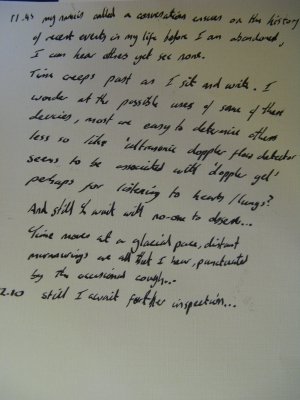 11.45 my name is called a conversation ensues on the history
of recent events in my life before I am abandoned,
I can hear others yet see none.
Time creeps past as I sit and write. I
wonder at the possible uses of some of these
devices, most are easy to determine others
less so like 'ultrasonic doppler flow detector'
seems to be associated with 'doppler gel'
perhaps for listening to hearts/lungs?
And still I wait with no-one to observe...
Time moves at a glacial pace, distant
murmurings are all that I hear, punctuated
by the occasional cough...
2.10 still I await further inspection...